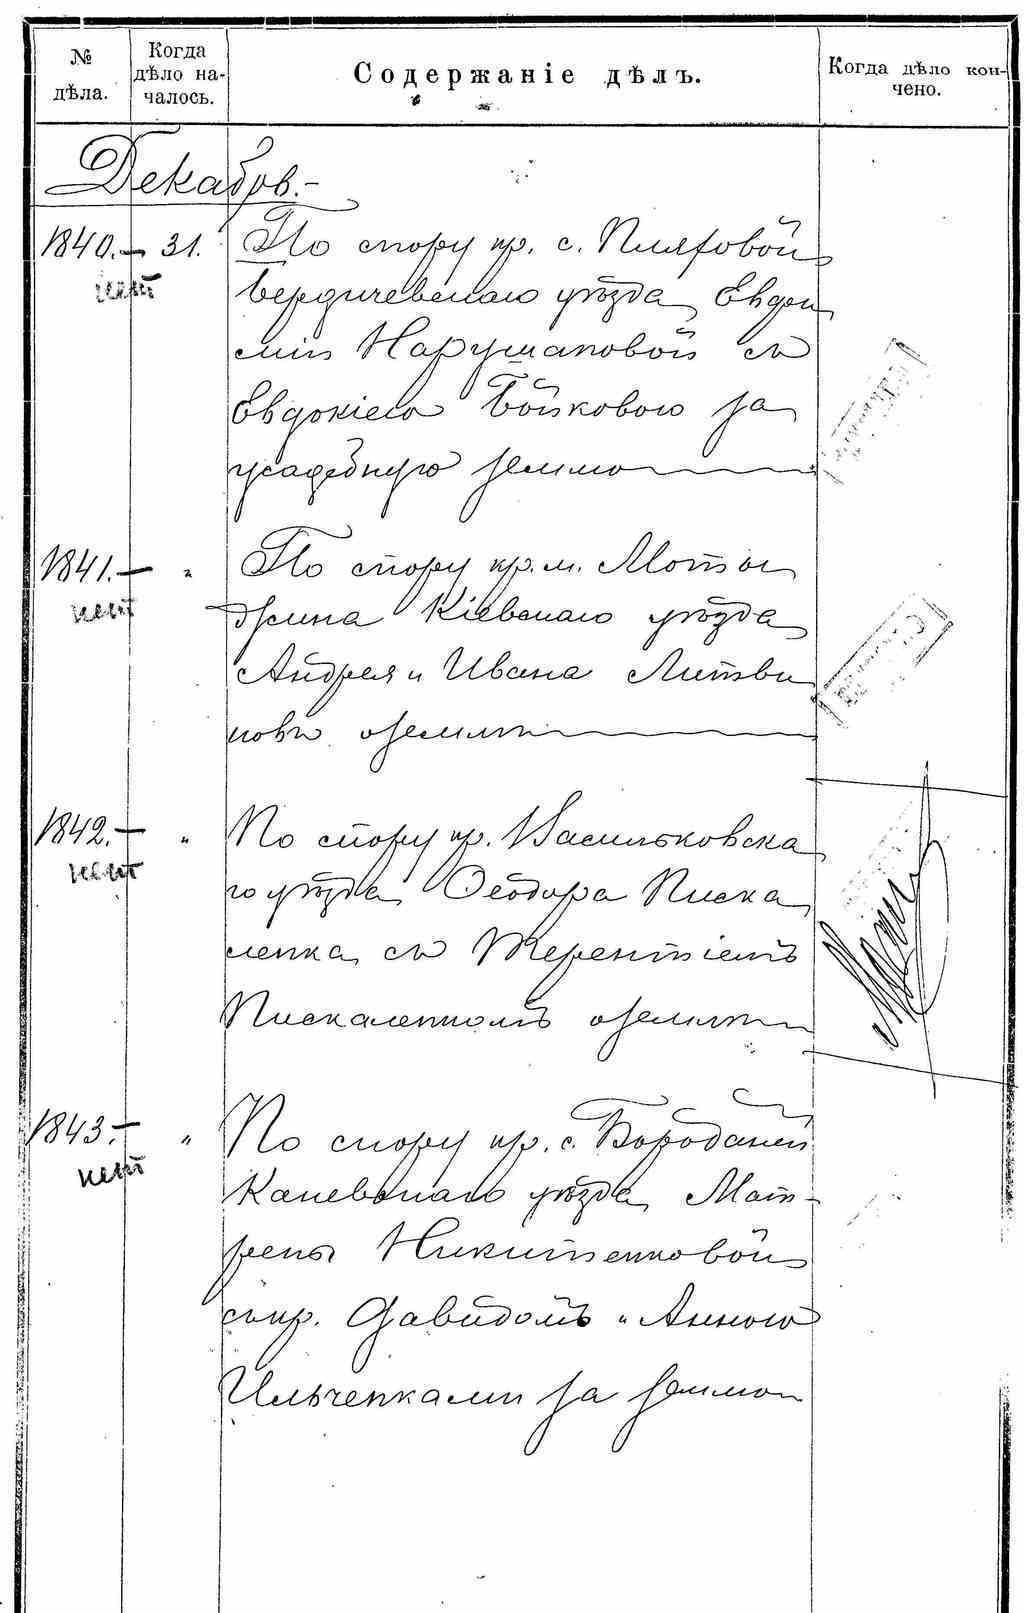 № дѣла.
Когда дѣло на-
чалось.
Содержаніе дѣлъ.
Когда дѣло кон-
чено.
Декабрь.-
1840.- 31. По спору кр. с. Пляховой
нет
Бердичевскаго уѣзда, Евдо
кіи Нарушаповой съ
Евдокіею Бойковою за
усадебную землю
1841.- " По спору кр. м. Мотови
нет
дловка Кіевскаго уѣзда
Андрея и Ивана Литви
новъ о землѣ
1842.- " По спору кр. Васильковска
нет
го уѣзда, Ѳеодора Писка
ленка, съ Терентіемъ
Пискаленкомъ о землѣ
1843.- " По спору кр. с. Бороданей
нет
Каневскаго уѣзда, Мат-
рены Никитенковой
съ кр. Давидомъ и Анною
Ильченками за землю